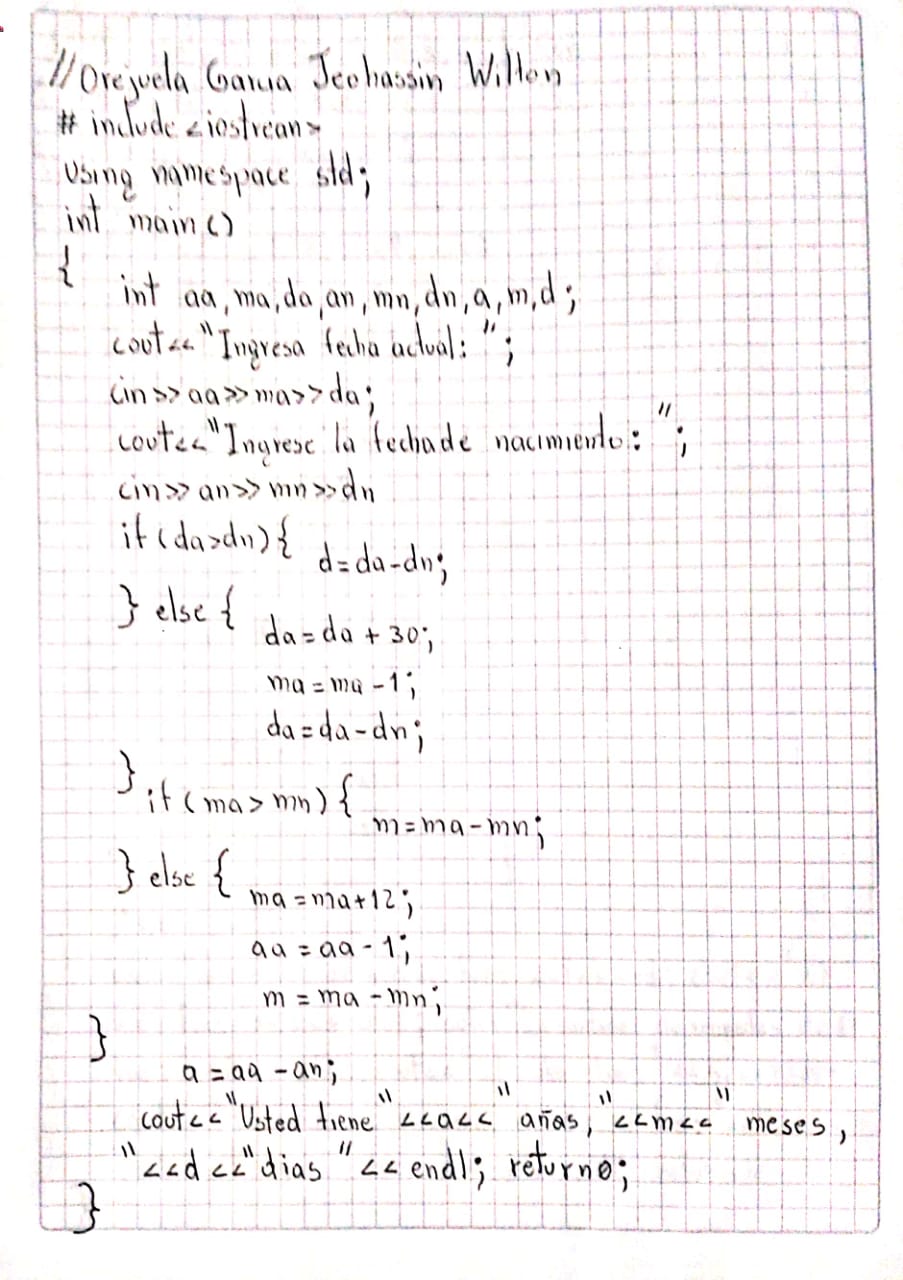 //Orejuela Garcia Jeohassin Wilton
# include <iostrean>
Using namespace std;
int main()
{
int aa, ma, da, an, mn, dn, a, m, d;
cout<<"Ingresa fecha actual: ";
cin>>aa>>ma>>da;
cout<<"Ingrese la fecha de nacimiento: ";
cin>>an>>mn>>dn
if(da>dn){
d=da-dn;
} else {
da=da+30;
ma=ma-1;
da=da-dn;
}
if(ma>mn){
m=ma-mn;
} else {
ma=ma+12;
aa=aa-1;
m=ma-mn;
}
a=aa-an;
cout<<"Usted tiene"<<a<<"añas, "<<m<<" meses,
"<<d<<"dias "<<endl; return0;
}